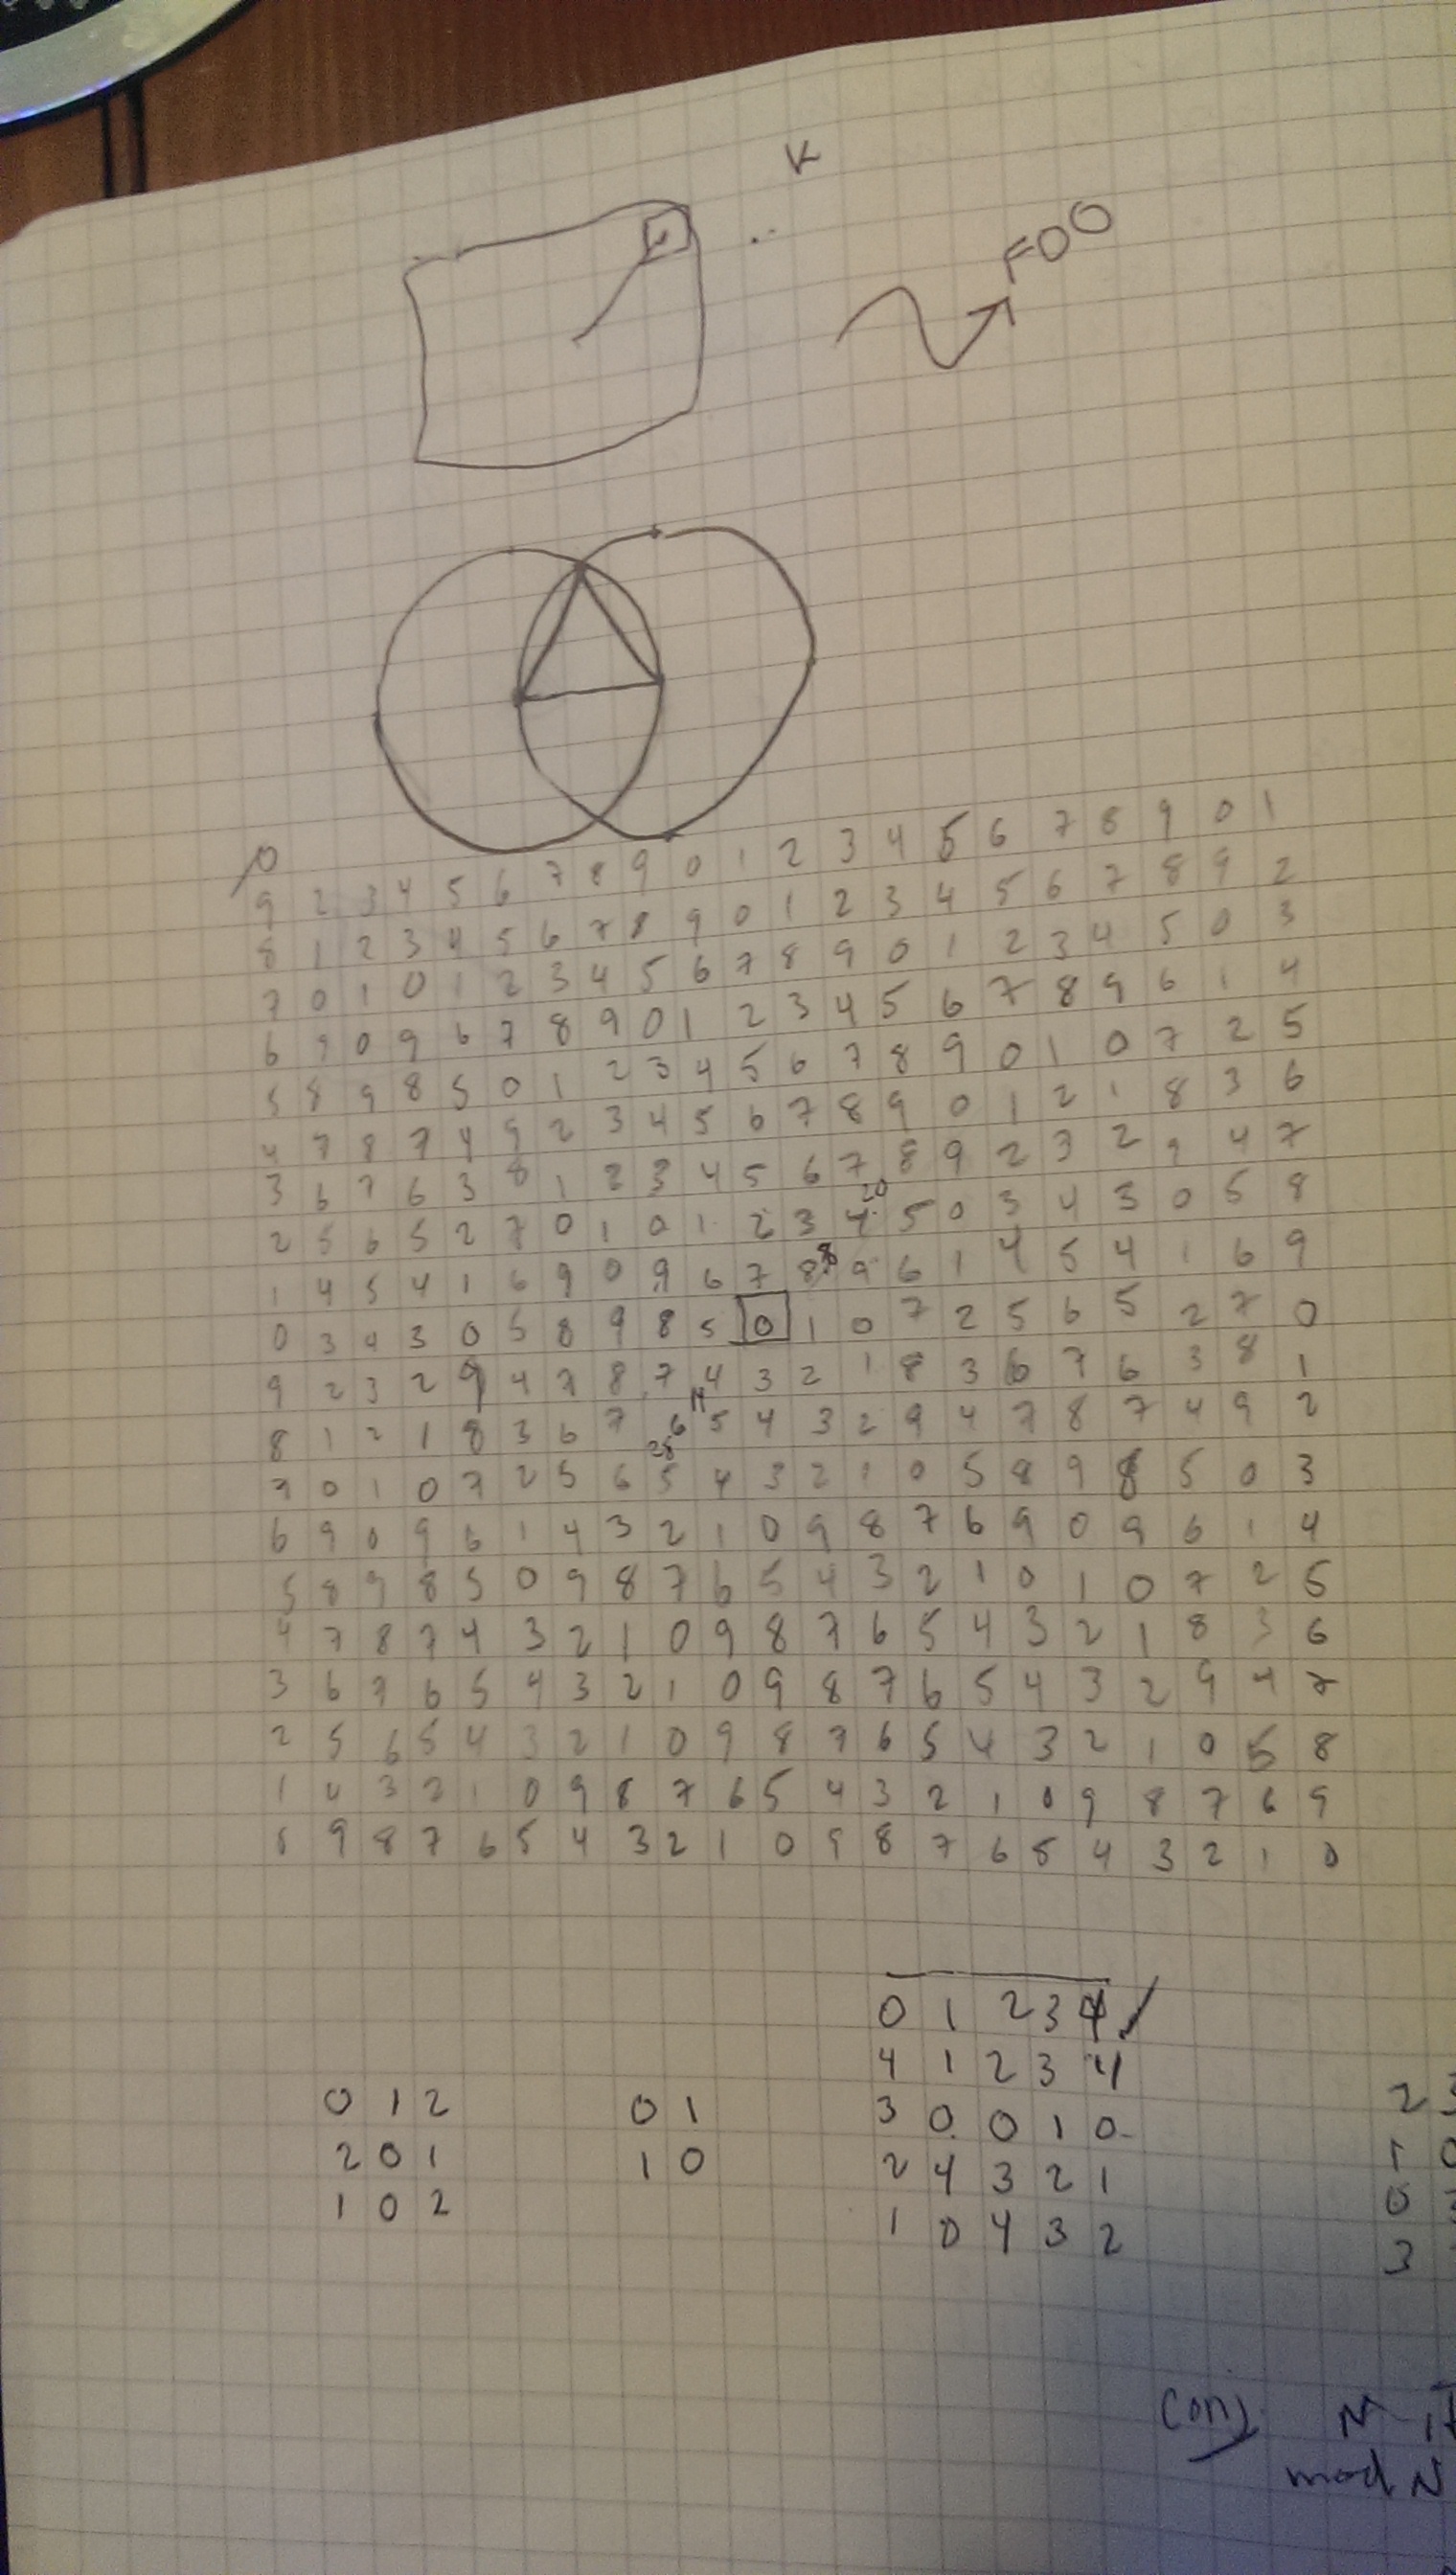 K
FOO
0 2 3 4 5 6 7 8 9 0 1 2 3 4 5 6 7 8 9 0 1
9 1 2 3 4 5 6 7 8 9 0 1 2 3 4 5 6 7 8 9 2
8 0 1 0 1 2 3 4 5 6 7 8 9 0 1 2 3 4 5 0 3
7 9 0 9 6 7 8 9 0 1 2 3 4 5 6 7 8 9 6 1 4
6 8 9 8 5 0 1 2 3 4 5 6 7 8 9 0 1 0 7 2 5
5 7 8 7 4 9 2 3 4 5 6 7 8 9 0 1 2 1 8 3 6
4 6 7 6 3 8 1 2 3 4 5 6 7 8 9 2 3 2 9 4 7
3 5 6 5 2 7 0 1 0 1 2 3 4 20 5 0 3 4 3 0 5 8
2 4 5 4 1 6 9 0 9 6 7 8 8 9 6 1 4 5 4 1 6 9
1 3 4 3 0 5 8 9 8 5 0 1 0 7 2 5 6 5 2 7 0
0 2 3 2 9 4 7 8 7 4 3 2 1 8 3 6 7 6 3 8 1
9 1 2 1 8 3 6 7 6 5 4 3 2 9 4 7 8 7 4 9 2
8 0 1 0 7 2 5 6 28 5 4 3 2 1 0 5 8 9 8 5 0 3
7 9 0 9 6 1 4 3 2 1 0 9 8 7 6 9 0 9 6 1 4
6 8 9 8 5 0 9 8 7 6 5 4 3 2 1 0 1 0 7 2 5
5 7 8 7 4 3 2 1 0 9 8 7 6 5 4 3 2 1 8 3 6
4 6 7 6 5 4 3 2 1 0 9 8 7 6 5 4 3 2 9 4 7
3 5 6 5 4 3 2 1 0 9 8 7 6 5 4 3 2 1 0 5 8
2 4 3 2 1 0 9 8 7 6 5 4 3 2 1 0 9 8 7 6 9
1 9 8 7 6 5 4 3 2 1 0 9 8 7 6 5 4 3 2 1 0
0 1 2 3 4
4 1 2 3 4
3 0 0 1 0
2 4 3 2 1
1 0 4 3 2
0 1 2
2 0 1
1 0 2
0 1
1 0
2
1
0
3
Conj N
mod N